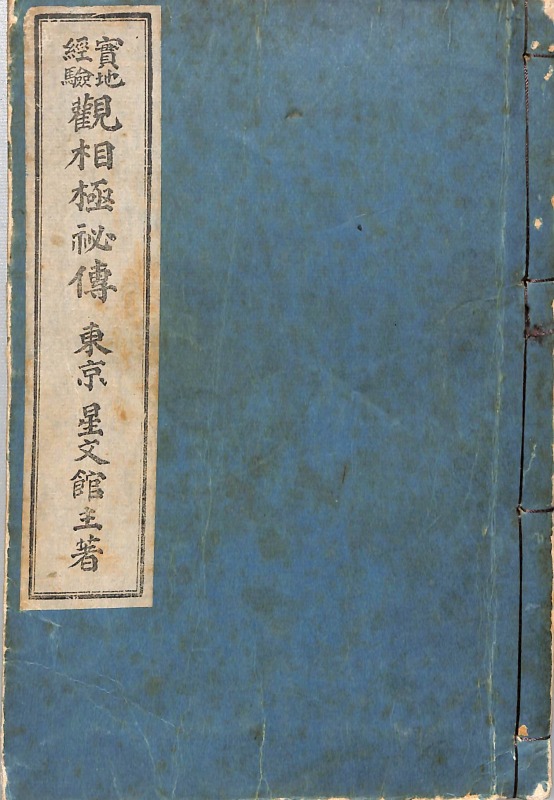 實地
經驗
觀相極祕傳
東京 星文館主著